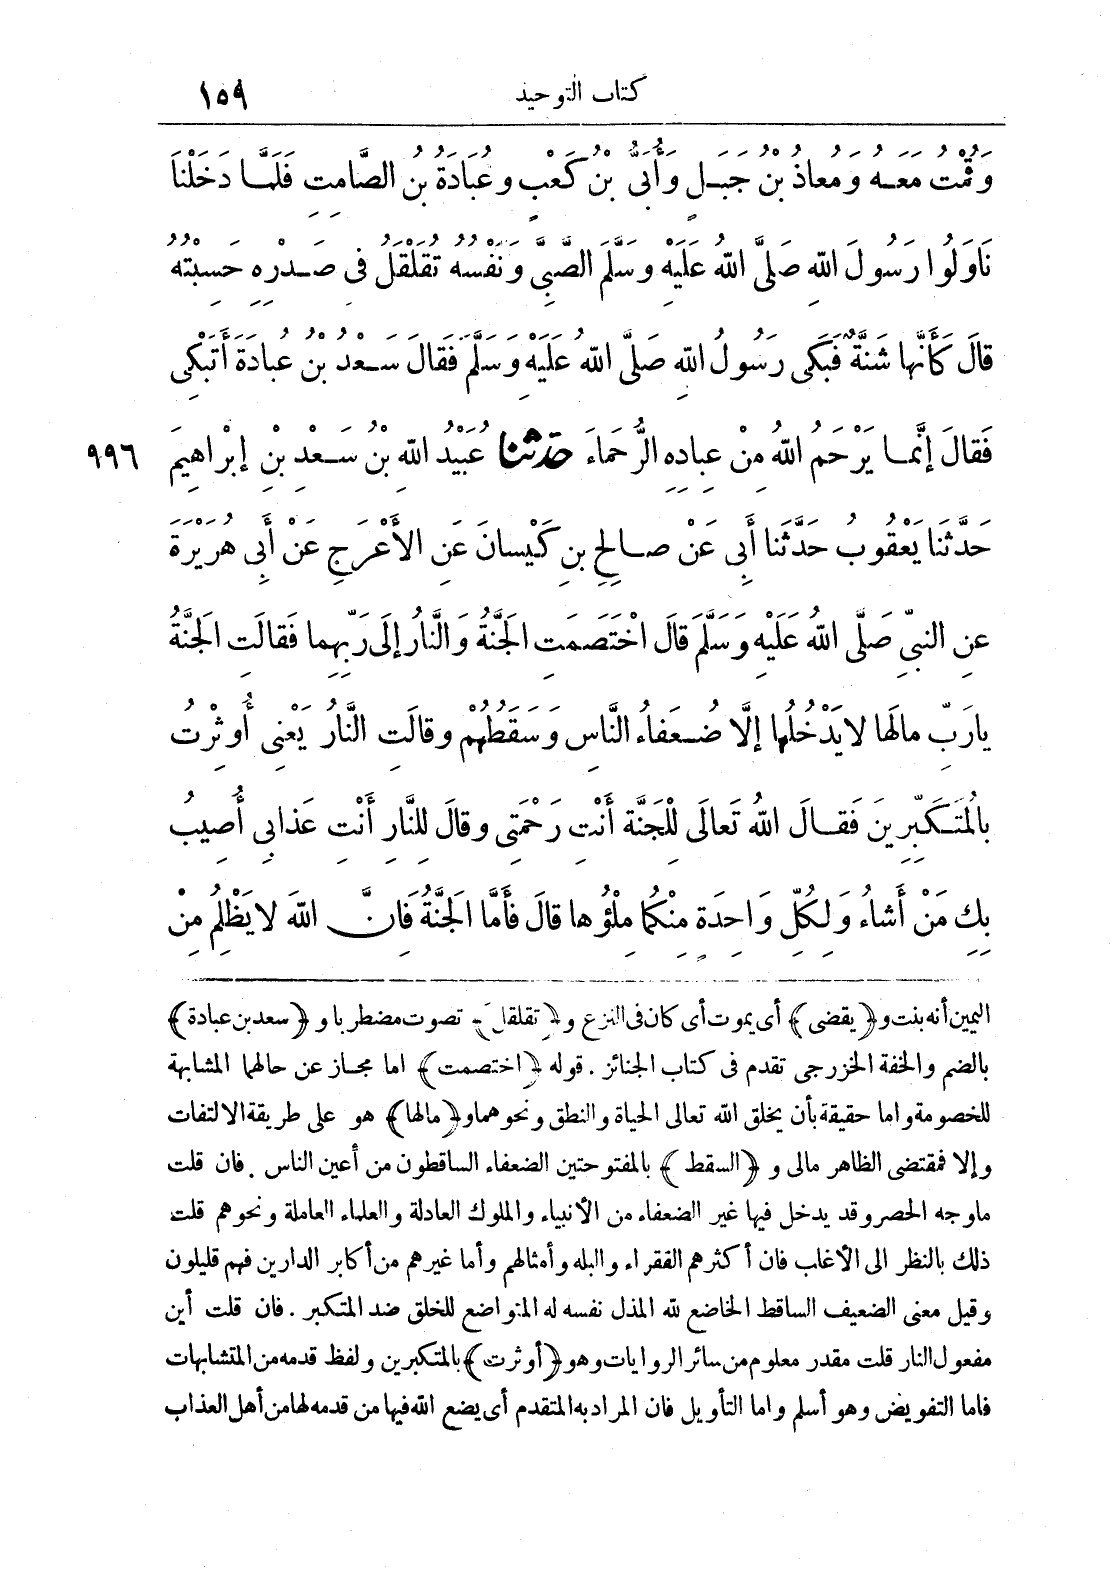 كتاب التوحيد ١٥٩
وَقُمْتُ مَعَهُ وَمُعاذُ بْنُ جَبَلٍ وَأُبَىُّ بْنُ كَعْبٍ وعُبَادَةُ بنُ الصَّامِتِ فَلَمَّا دَخَلْنَا
نَاوَلُوا رَسُولَ اللهِ صَلَّى اللهُ عَلَيْهِ وَسَلَّمَ الصَّبِىَّ وَنَفْسُهُ تُقَلْقَلُ فِى صَدْرِهِ حَسِبْتُهُ
قالَ كَأَنَّها شَنَّةٌ فَبَكَى رَسُولُ اللهِ صَلَّى اللهُ عَلَيْهِ وَسَلَّمَ فَقالَ سَعْدُ بْنُ عُبادَةَ أَتَبْكِى
فَقَالَ إِنَّما يَرْحَمُ اللهُ مِنْ عِبادِهِ الرُّحَماءَ حدثنا عُبَيْدُ اللهِ بْنُ سَعْدِ بْنِ إِبْراهِيمَ ٩٩٦
حَدَّثَنا يَعْقُوبُ حَدَّثَنا أَبِى عَنْ صالِحِ بنِ كَيْسانَ عَنِ الأَعْرَجِ عَنْ أَبِى هُرَيْرَةَ
عنِ النبيِّ صَلَّى اللهُ عَلَيْهِ وَسَلَّمَ قالَ اخْتَصَمَتِ الجَنَّةُ وَالنَّارُ إلَى رَبِّهِما فَقالَتِ الجَنَّةُ
يارَبِّ مالَها لا يَدْخُلُها إلَّا ضُعَفاءُ النَّاسِ وَسَقَطُهُمْ وقالَتِ النَّارُ يَعْنِى أُوثِرْتُ
بالمُتَكَبِّرِينَ فَقالَ اللهُ تَعالَى لِلْجَنَّةِ أَنْتِ رَحْمَتِى وقالَ لِلنَّارِ أَنْتِ عَذابِى أُصِيبُ
بِكِ مَنْ أَشاءُ وَلِكُلِّ وَاحِدَةٍ مِنْكُما مِلْؤُها قالَ فَأَمَّا الجَنَّةُ فَإِنَّ اللهَ لا يَظْلِمُ مِنْ
اليمين أنه بنت و﴿يقضى﴾ أى يموت أى كان فى النزع و﴿تقلقل﴾ تصوت مضطربا و﴿سعد بن عبادة﴾
بالضم والخفة الخزرجى تقدم فى كتاب الجنائز. قوله ﴿اختصمت﴾ اما مجاز عن حالهما المشابهة
للخصومة واما حقيقة بأن يخلق الله تعالى الحياة والنطق ونحوهما و﴿مالها﴾ هو على طريقة الالتفات
وإلا فمقتضى الظاهر مالى و﴿السقط﴾ بالمفتوحتين الضعفاء الساقطون من أعين الناس. فان قلت
ماوجه الحصر وقد يدخل فيها غير الضعفاء من الأنبياء والملوك العادلة والعلماء العاملة ونحوهم قلت
ذلك بالنظر الى الأغاب فان أكثرهم الفقراء والبله وأمثالهم وأما غيرهم من أكابر الدارين فهم قليلون
وقيل معنى الضعيف الساقط الخاضع لله المذل نفسه له المتواضع للخلق ضد المتكبر. فان قلت أين
مفعول النار قلت مقدر معلوم من سائر الروايات وهو ﴿أوثرت﴾ بالمتكبرين ولفظ قدمه من المتشابهات
فاما التفويض وهو أسلم واما التأويل فان المراد به المتقدم أى يضع الله فيها من قدمه لها من أهل العذاب